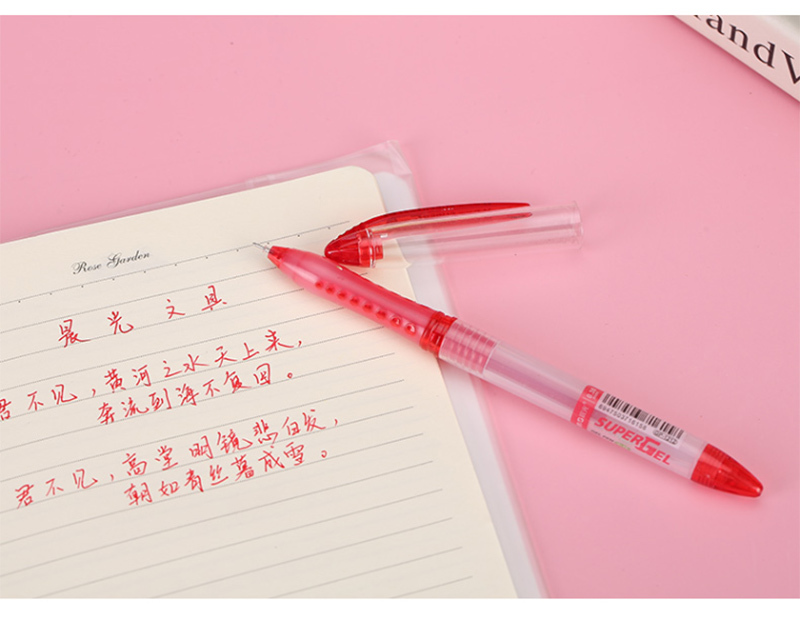 andV
Rose Garden
晨光 文具
君不见，黄河之水天上来，
奔流到海不复回。
君不见，高堂明镜悲白发，
朝如青丝暮成雪。
SUPERGEL